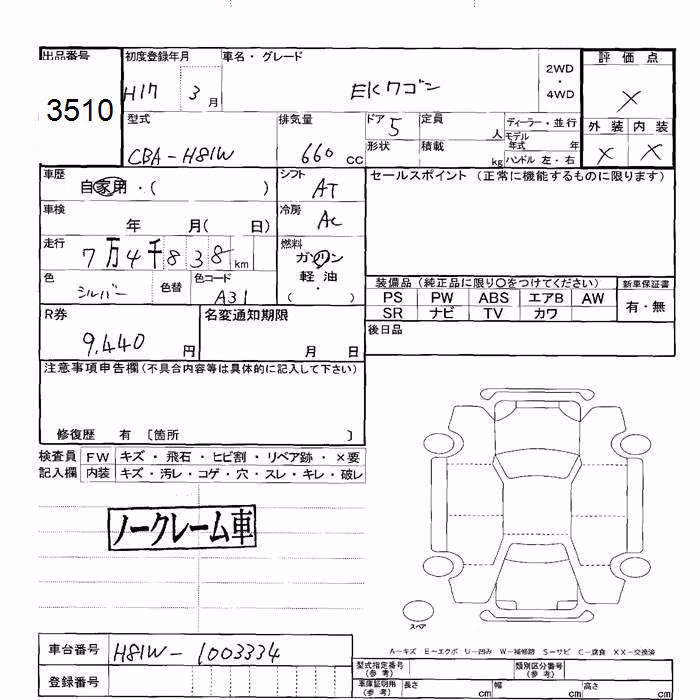 出品番号
3510
初度登録年月
H17 3月
車名・グレード
EKワゴン
2WD
・
4WD
評価点
×
外装 内装
× ×
型式
CBA-H81W
排気量
660 cc
ドア 5
定員
人
ディーラー・並行
モデル
年式 年
形状
積載
kg
ハンドル 左・右
車歴
自家用・( )
シフト
AT
セールスポイント (正常に機能するものに限ります)
車検
年 月( 日)
冷房
AC
走行
7万4千838km
燃料
ガソリン
・
軽油
( )
色
シルバー
色替
色コード
A31
装備品 (純正品に限り○をつけてください)
新車保証書
PS PW ABS エアB AW
有・無
SR ナビ TV カワ
R券
9,440 円
名変通知期限
月 日
後日品
注意事項申告欄(不具合内容等は具体的に記入して下さい)
修復歴 有 〔箇所 〕
検査員 FW キズ・飛石・ヒビ割・リペア跡・×要
記入欄 内装 キズ・汚レ・コゲ・穴・スレ・キレ・破レ
ノークレーム車
スペア
A-キズ E-エクボ U-凹み W-補修跡 S-サビ C-腐食 XX-交換済
車台番号
H81W-1003334
登録番号
型式指定番号
(参考)
類別区分番号
(参考)
車庫証明用
(参考)
長さ cm
幅 cm
高さ cm